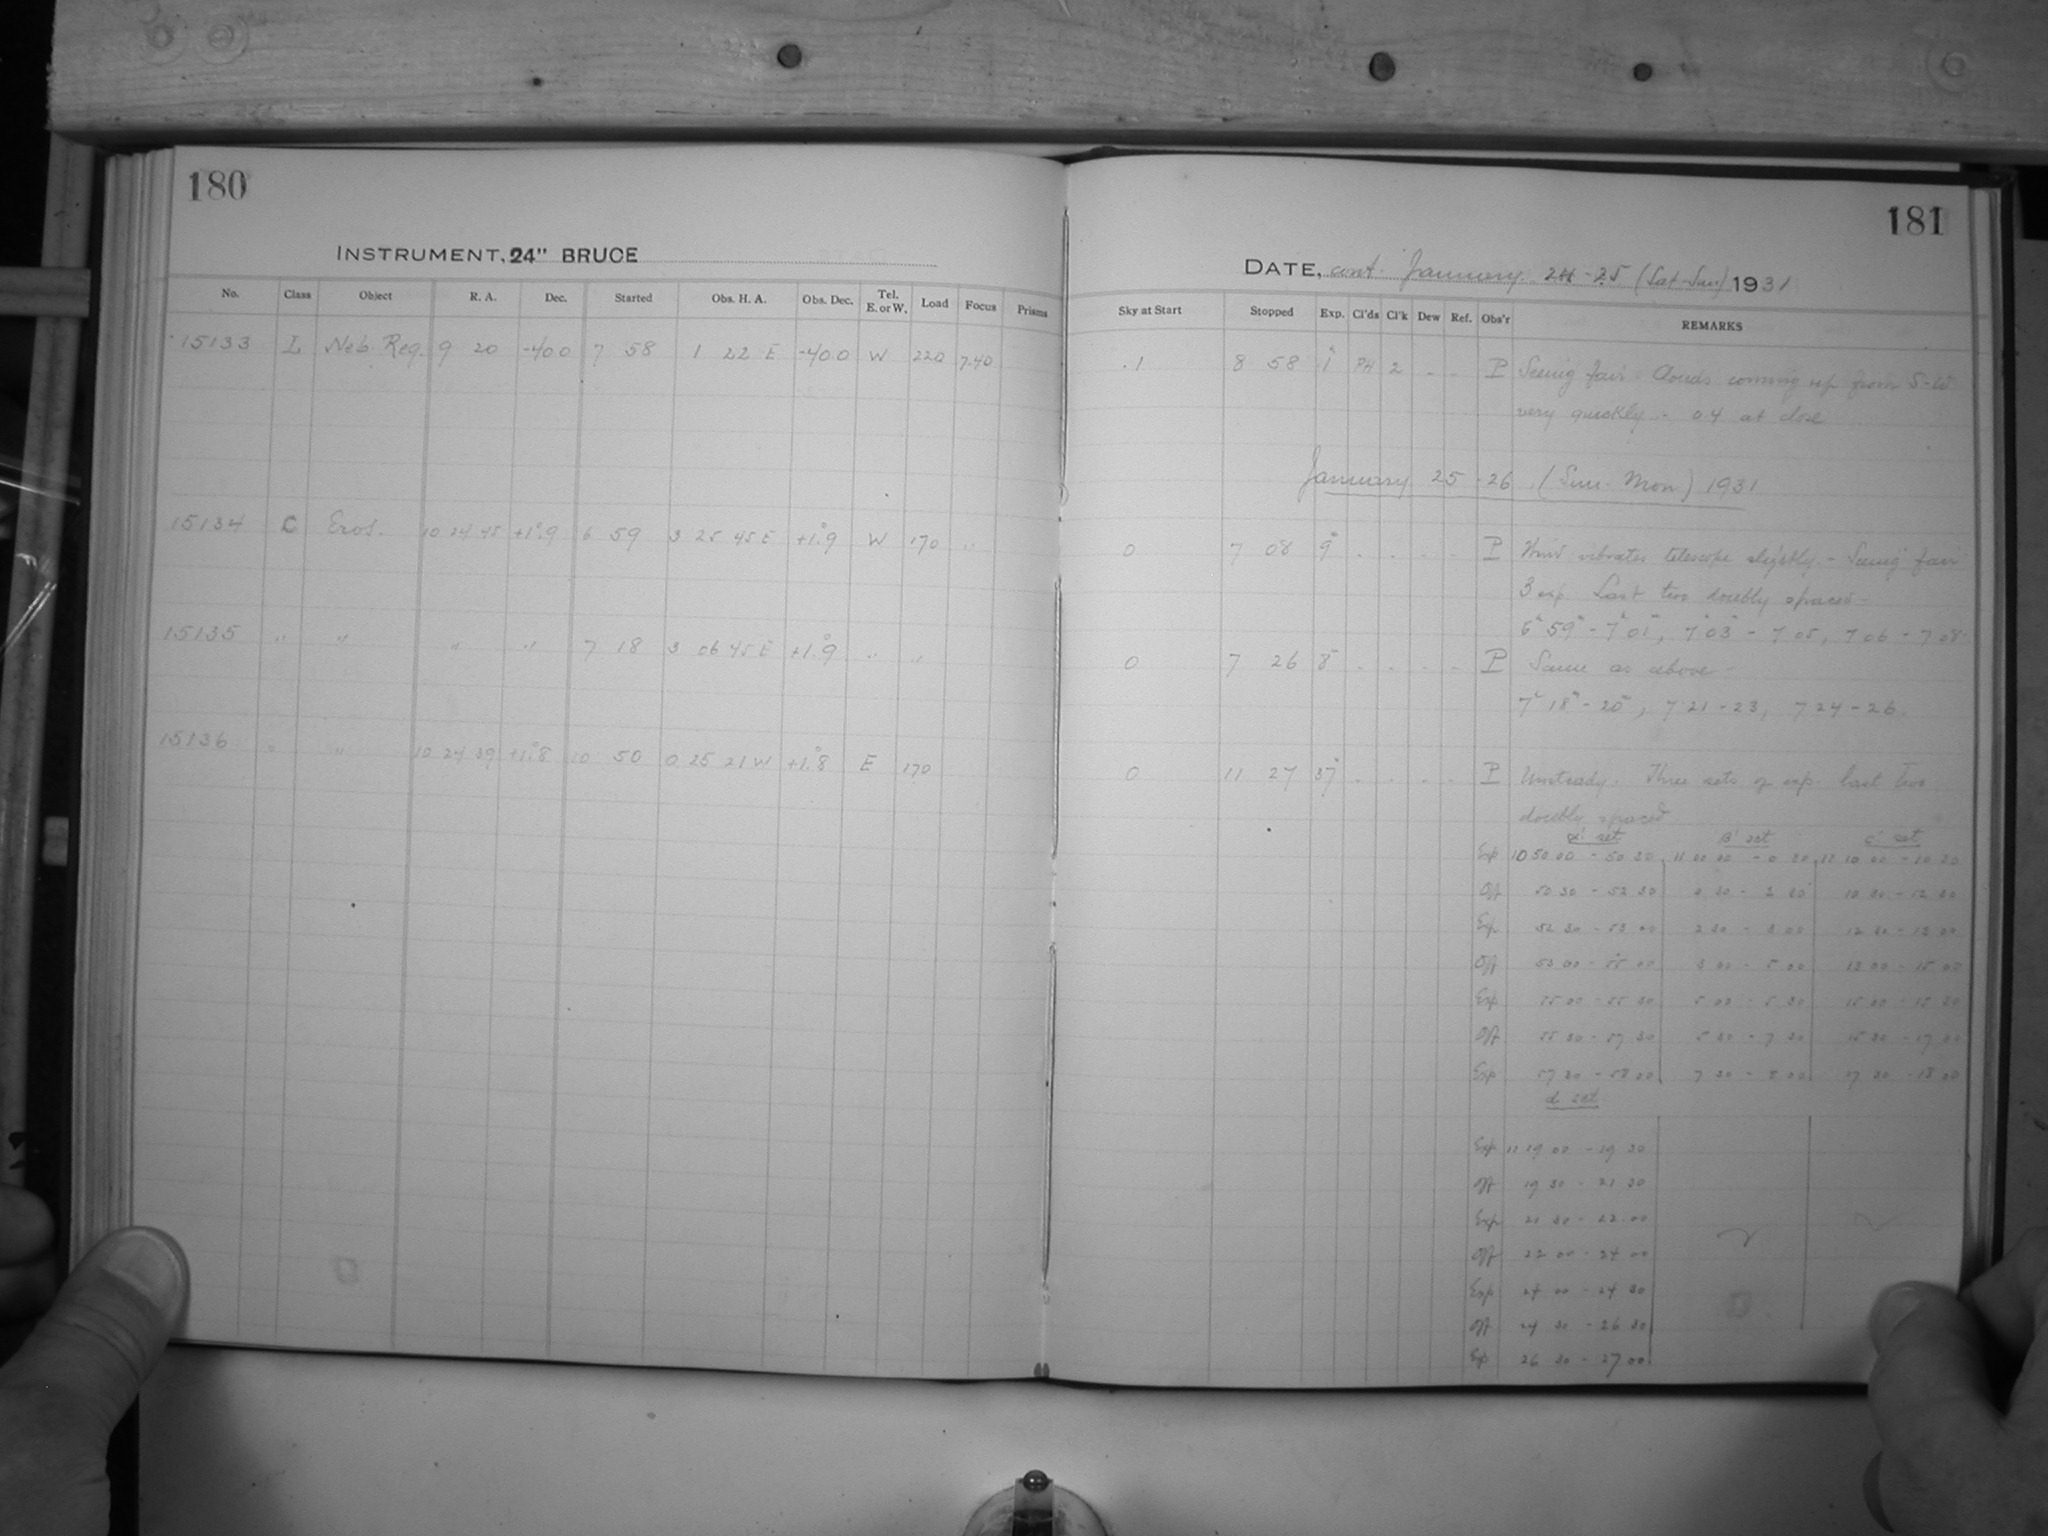 180
INSTRUMENT, 24" BRUCE
No. Class Object R. A. Dec. Started Obs. H. A. Obs. Dec. Tel. E. or W. Load Focus Prisms
15133 L Neb Reg. 9 20 -40.0 7 58 1 22 E -40.0 W 220 7.40
15134 C Eros. 10 24 45 +1°.9 6 59 3 25 45 E +1°.9 W 170 "
15135 " " " " 7 18 3 06 45 E +1°.9 " "
15136 " " 10 24 39 +1°.8 10 50 0 25 21 W +1°.8 E 170
181
DATE, cont. January 24-25 (Sat-Sun) 1931
Sky at Start Stopped Exp. Cl'ds Cl'k Dew Ref. Obs'r REMARKS
.1 8 58 1h PH 2 - - P Seeing fair. Clouds coming up from S-W
very quickly - 0.4 at close
January 25-26 (Sun-Mon) 1931
0 7 08 9m . . . . P Wind vibrates telescope slightly - Seeing fair
3 exp. Last two doubly spaced -
6h 59m - 7h 01m, 7h 03m - 7 05, 7 06 - 7 08
0 7 26 8m . . . - P Same as above -
7h 18m - 20m, 7 21 - 23, 7 24 - 26
0 11 27 37m . . . - P Unsteady. Three sets of exp. last two
doubly spaced
a' set B' set c' set
Exp 10 50 00 - 50 30 11 00 00 - 0 30 11 10 00 - 10 30
Off 50 30 - 52 30 0 30 - 2 30 10 30 - 12 30
Exp 52 30 - 53 00 2 30 - 3 00 12 30 - 13 00
Off 53 00 - 55 00 3 00 - 5 00 13 00 - 15 00
Exp 55 00 - 55 30 5 00 - 5 30 15 00 - 15 30
Off 55 30 - 57 30 5 30 - 7 30 15 30 - 17 30
Exp 57 30 - 58 00 7 30 - 8 00 17 30 - 18 00
d set
Exp 11 19 00 - 19 30
Off 19 30 - 21 30
Exp 21 30 - 22 00
Off 22 00 - 24 00
Exp 24 00 - 24 30
Off 24 30 - 26 30
Exp 26 30 - 27 00